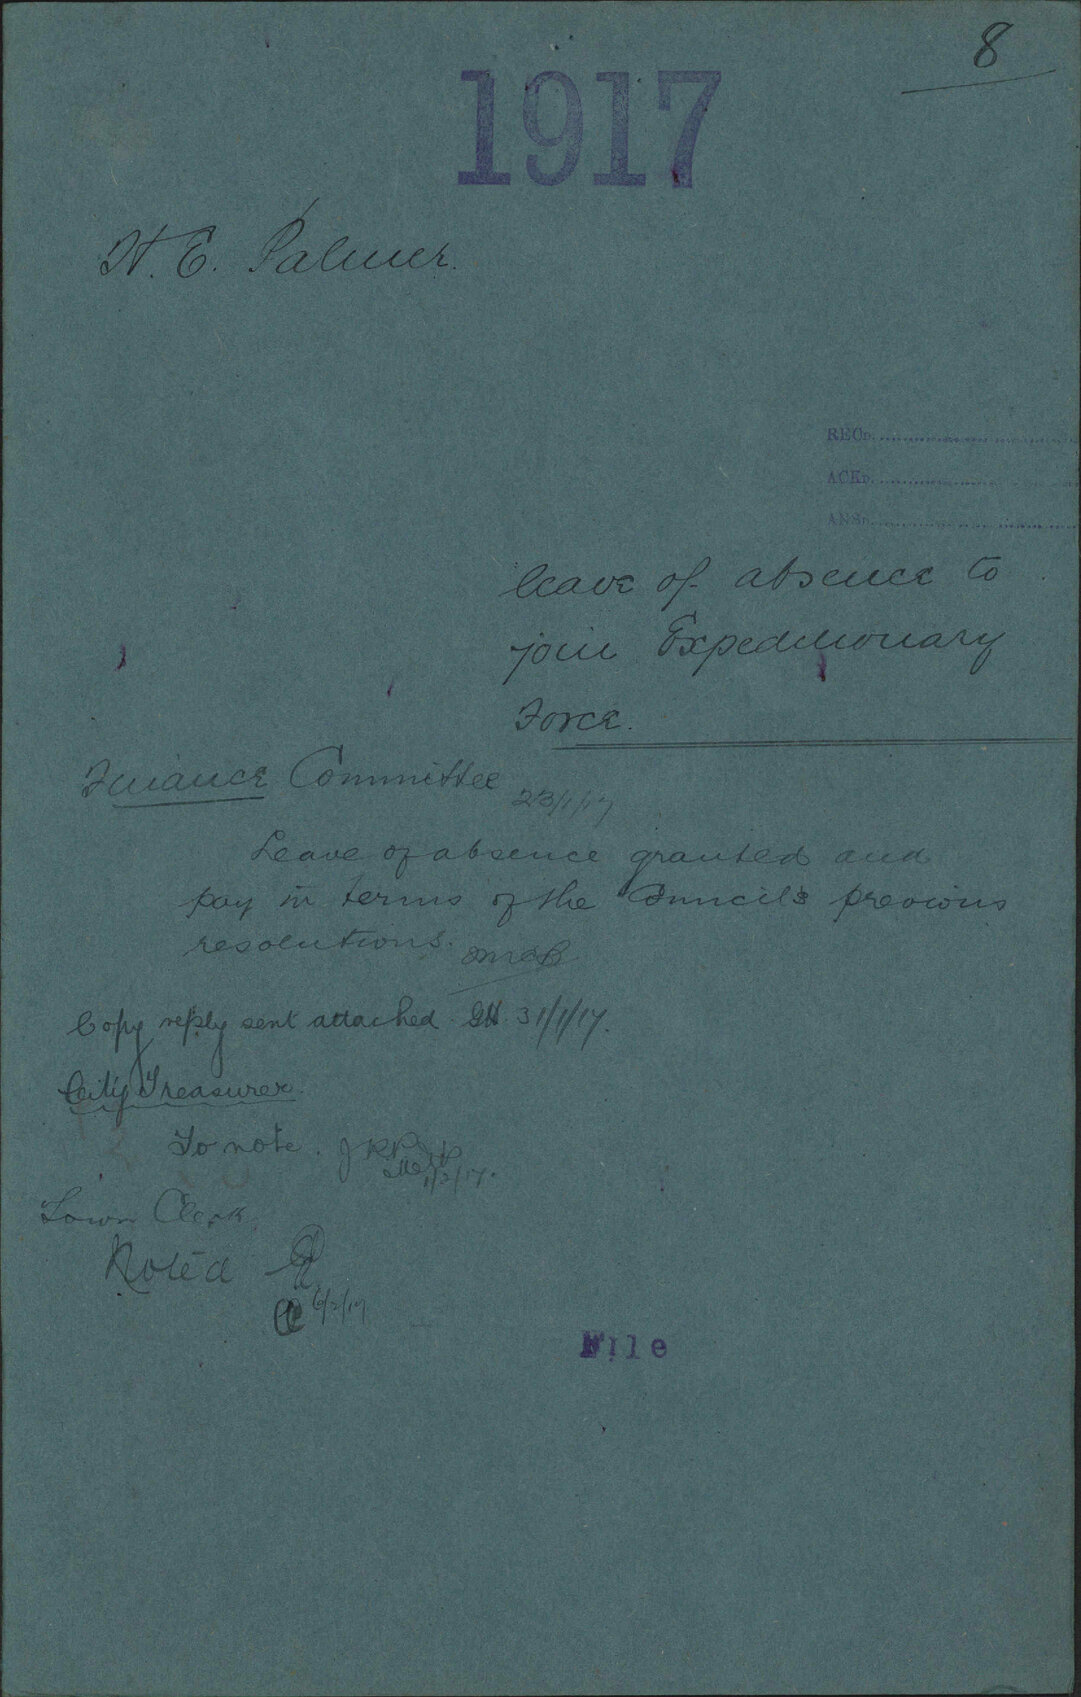 8
1917
H. E. Palmer.
RECD.
ACKD.
ANSD.
leave of absence to
join Expeditionary
Force.
Finance Committee
23/1/17
Leave of absence granted and
pay in terms of the Council's previous
resolutions.
Copy reply sent attached. GH 31/1/17.
City Treasurer.
To note.
1/2/17.
Town Clerk,
Noted
6/2/17
File